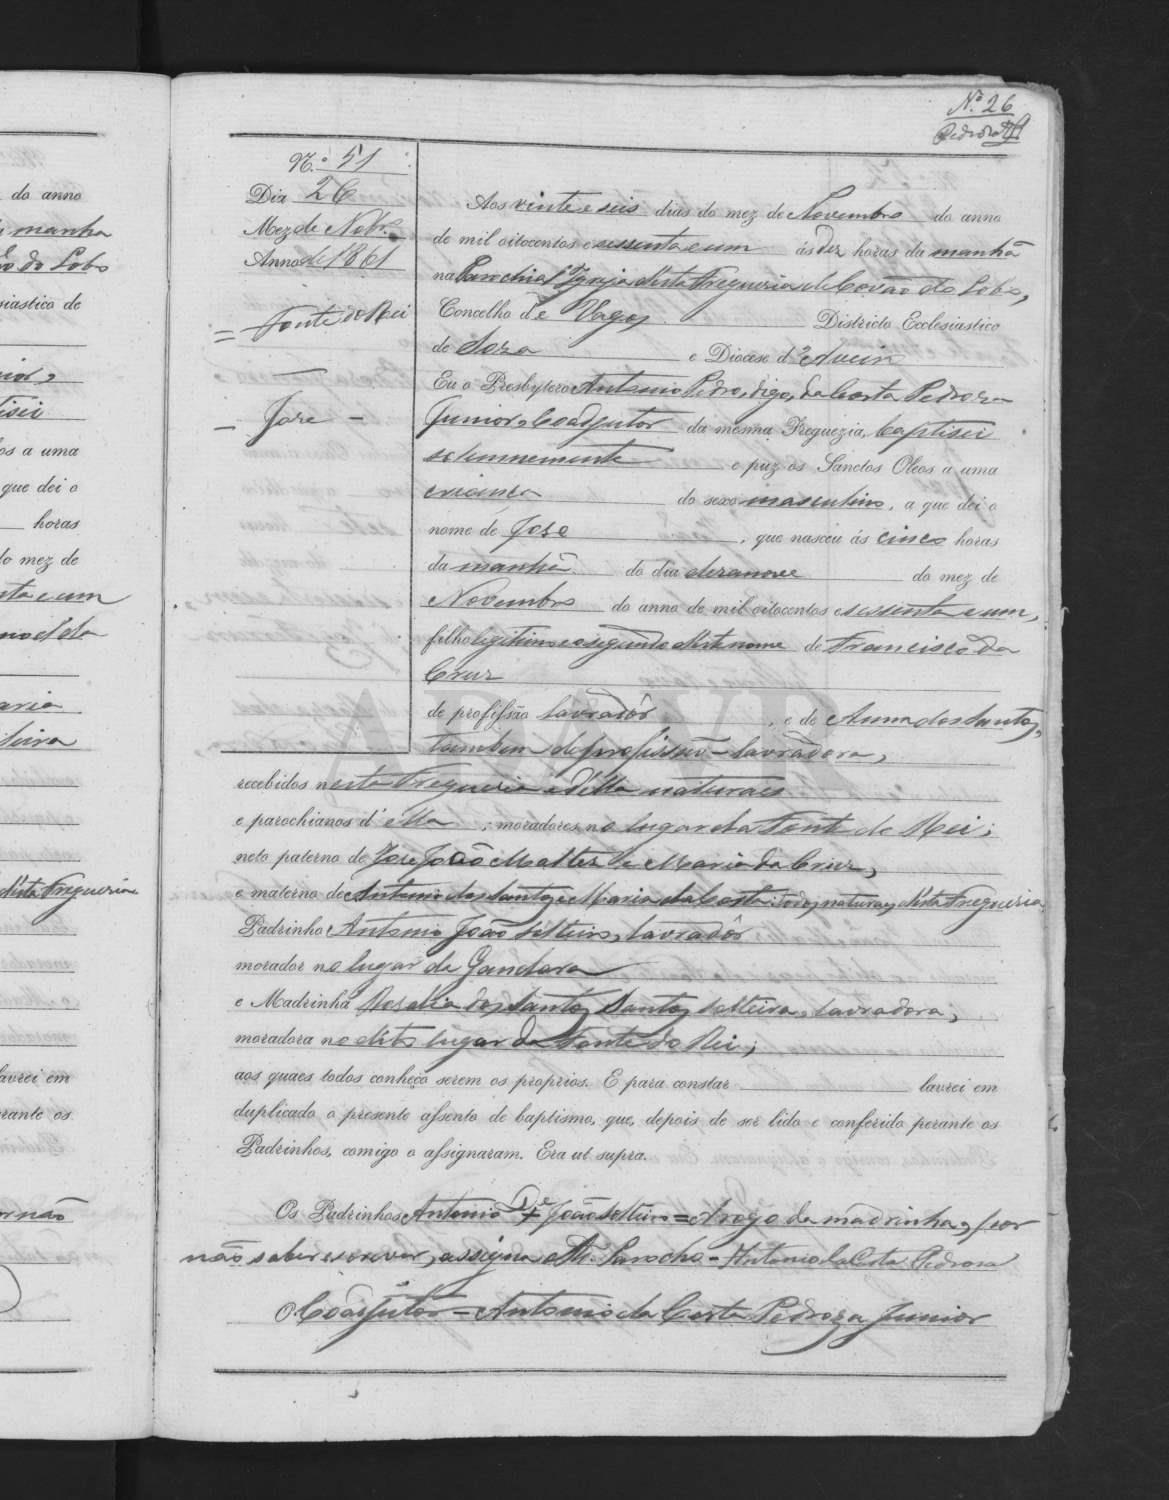 N.º 26
Pedroza
do anno
manha
do Lobo
siastico de
os a uma
que dei o
horas
do mez de
nta e um
aria
desta Freguezia
lavrei em
rante os
não
N.º 51
Dia 26
Mez de Nobr.º
Anno de 1861
= Fonte do Rei
= Joze =
Aos vinte e seis dias do mez de Novembro do anno
de mil oitocentos e sessenta e um ás dez horas da manhã
na Parochial Igreja desta Freguezia de Covão do Lobo,
Concelho de Vagos Districto Ecclesiastico
de Soza e Diocese d'Aveiro
Eu o Presbytero Antonio Pedro, digo, da Costa Pedroza
Junior, Coadjutor da mesma Freguezia, baptisei
solemnemente e puz os Sanctos Oleos a uma
criança do sexo masculino, a que dei o
nome de Joze, que nasceu ás cinco horas
da manhã do dia dezanove do mez de
Novembro do anno de mil oitocentos e sessenta e um,
filho legitimo e o segundo deste nome de Francisco da
Cruz
de profissão lavradôr, e de Anna dos Santos,
tambem de profissão lavradora,
recebidos nesta Freguezia e d'ella naturaes
e parochianos d'ella; moradores no lugar da Fonte do Rei;
neto paterno de Joze João Mattos e Maria da Cruz,
e materno de Antonio dos Santos e Maria da Costa: todos naturaes desta Freguezia.
Padrinho Antonio João solteiro, lavradôr
morador no lugar da Gandara
e Madrinha Rosalia dos Santos Santos solteira, lavradora,
moradora no dito lugar da Fonte do Rei;
aos quaes todos conheço serem os proprios. E para constar lavrei em
duplicado o presente assento de baptismo, que, depois de ser lido e conferido perante os
Padrinhos, comigo o assignaram. Era ut supra.
Os Padrinhos Antonio + João solteiro = A rogo da madrinha, por
não saber escrever, assigna o Parocho - Antonio da Costa Pedroza
O Coadjutor = Antonio da Costa Pedroza Junior
ADAVR